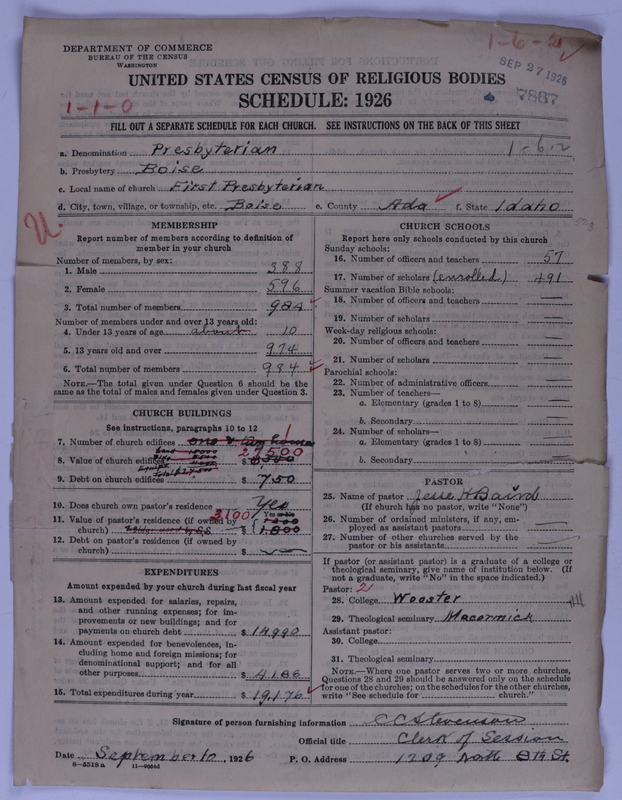 DEPARTMENT OF COMMERCE
BUREAU OF THE CENSUS
WASHINGTON
SEP 27 1926
7887
UNITED STATES CENSUS OF RELIGIOUS BODIES
SCHEDULE: 1926
1-1-0
FILL OUT A SEPARATE SCHEDULE FOR EACH CHURCH. SEE INSTRUCTIONS ON THE BACK OF THIS SHEET
a. Denomination Presbyterian 1-6-2
b. Presbytery Boise
c. Local name of church First Presbyterian
d. City, town, village, or township, etc. Boise e. County Ada f. State Idaho
MEMBERSHIP
Report number of members according to definition of
member in your church
Number of members, by sex:
1. Male 388
2. Female 596
3. Total number of members 984
Number of members under and over 13 years old:
4. Under 13 years of age about 10
5. 13 years old and over 974
6. Total number of members 984
NOTE.—The total given under Question 6 should be the
same as the total of males and females given under Question 3.
CHURCH BUILDINGS
See instructions, paragraphs 10 to 12
7. Number of church edifices 1
27500
8. Value of church edifices $
9. Debt on church edifices $ 750
10. Does church own pastor's residence Yes
Yes or No
11. Value of pastor's residence (if owned by
church) 2100 $ 1,800
12. Debt on pastor's residence (if owned by
church) $
EXPENDITURES
Amount expended by your church during last fiscal year
13. Amount expended for salaries, repairs,
and other running expenses; for im-
provements or new buildings; and for
payments on church debt $ 14,990
14. Amount expended for benevolences, in-
cluding home and foreign missions; for
denominational support; and for all
other purposes $ 4,186
15. Total expenditures during year $ 19,176
CHURCH SCHOOLS
Report here only schools conducted by this church
Sunday schools:
16. Number of officers and teachers 57
17. Number of scholars (enrolled) 491
Summer vacation Bible schools:
18. Number of officers and teachers —
19. Number of scholars —
Week-day religious schools:
20. Number of officers and teachers —
21. Number of scholars —
Parochial schools:
22. Number of administrative officers —
23. Number of teachers—
a. Elementary (grades 1 to 8) —
b. Secondary —
24. Number of scholars—
a. Elementary (grades 1 to 8) —
b. Secondary —
PASTOR
25. Name of pastor Jesse H Baird
(If church has no pastor, write "None")
26. Number of ordained ministers, if any, em-
ployed as assistant pastors
27. Number of other churches served by the
pastor or his assistants
If pastor (or assistant pastor) is a graduate of a college or
theological seminary, give name of institution below. (If
not a graduate, write "No" in the space indicated.)
Pastor: 2
28. College Wooster
29. Theological seminary Macormick
Assistant pastor:
30. College
31. Theological seminary
NOTE.—Where one pastor serves two or more churches,
Questions 28 and 29 should be answered only on the schedule
for one of the churches; on the schedules for the other churches,
write "See schedule for church."
Signature of person furnishing information C C Stevenson
Official title Clerk of Session
Date September 10, 1926 P. O. Address 1209 North 8th St.
8-5518 a